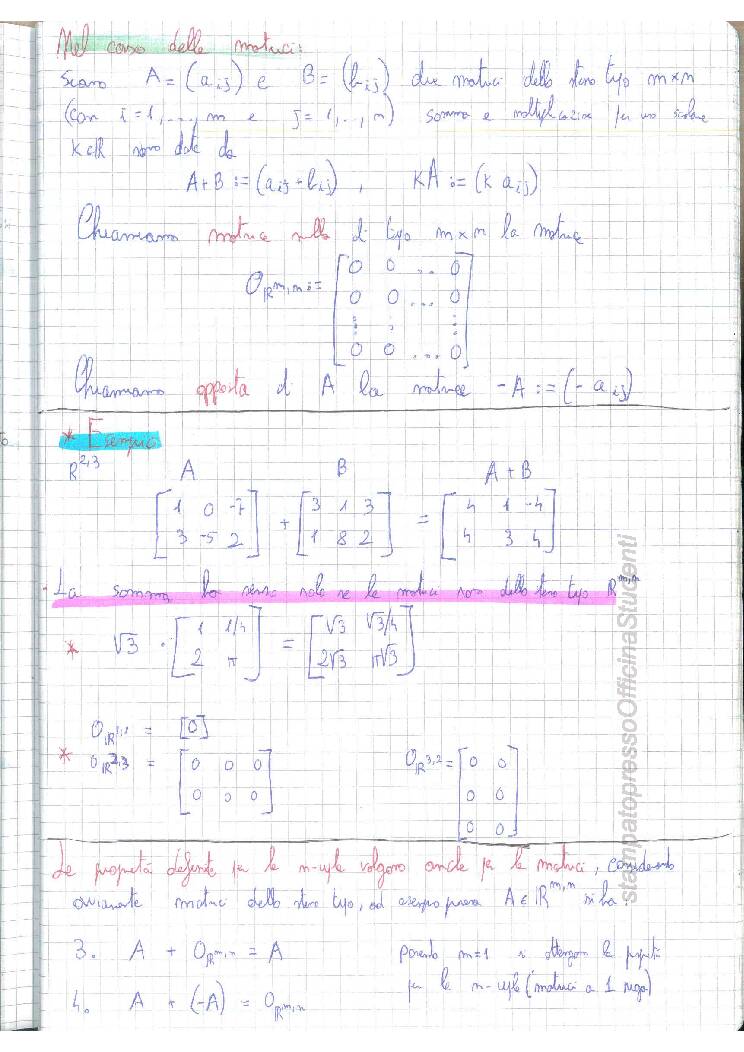 Nel caso delle matrici:
Siano A = (a ij) e B = (b ij) due matrici dello stesso tipo m×n
(con i = 1, ..., m e j = 1, .., n) somma e moltiplicazione per uno scalare
K∈ℝ sono date da
A+B := (aij + bij) , KA := (K aij)
Chiamiamo matrice nulla di tipo m×n la matrice
Oℝm,n := [0 0 .. 0
0 0 ... 0
⋮ ⋮ ⋮
0 0 ... 0]
Chiamiamo opposta di A la matrice -A := (- a ij)
* Esempio
R2,3 A B A + B
[1 0 -7 + [3 1 3 = [4 1 -4
3 -5 2] 1 8 2] 4 3 4]
La somma ha senso solo se le matrici sono dello stesso tipo ℝm,n
* √3 · [1 1/4 = [√3 √3/4
2 π] 2√3 π√3]
Oℝ1,1 = [0]
* Oℝ2,3 = [0 0 0 Oℝ3,2 = [0 0
0 0 0] 0 0
0 0]
Le proprietà definite per le n-uple valgono anche per le matrici, considerando
ovviamente matrici dello stesso tipo, ad esempio presa A∈ℝm,n si ha:
3. A + Oℝm,n = A ponendo m=1 si ottengono le proprietà
4. A + (-A) = Oℝm,n per le n-uple (matrici a 1 riga)
stampatopressoOfficinaStudenti